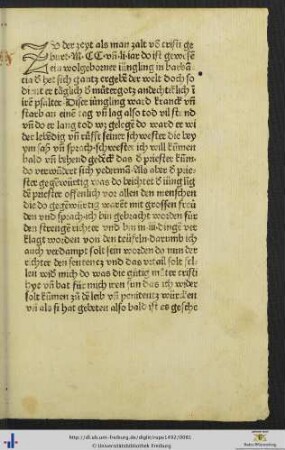 ZU der zeyt als man zalt vō cristi ge
burt M·CC·vñ·li·iar do ist gewesē
ein wolgeborner iüngling in barba
ria d̄ het sich gantz ergebē der welt doch so
dient er täglich d̄ mütergotz andechtiklich ī
irē psalter· Diser iüngling ward kranck vñ
starb an einē tag vñ lag also tod vil stund
vñ do er lang tod wz gelegē do ward er wi
der lebēdig vñ rüfft seiner schwester die bey
ym saß vñ sprach schwester ich will kūmen
bald vñ
do verwūdert sich yederman Als aber d̄ prie
ster gegēwürtig was do beichtet d̄ iūglīg
dē priester offenlich vor allen den menschen
die do gegēwürtig warēt mit grossen freü
den vnd sprach ich bin gebracht worden für
den strenge richter vnd bin in dingē ver
klagt worden von den teüfeln darumb ich
auch verdampt solt sein worden do nun der
richter den sentencz vnd das vrtail solt fel
len wid̄ mich do was die gütig müter cristi
hye vñ bat für mich iren sun das ich wider
solt kūmen zū dē leib vñ penitentz würken
vñ als si hat gebeten also bald ist es gesche
http://dl.ub.uni-freiburg.de/diglit/rupe1492/0081
© Universitätsbibliothek Freiburg